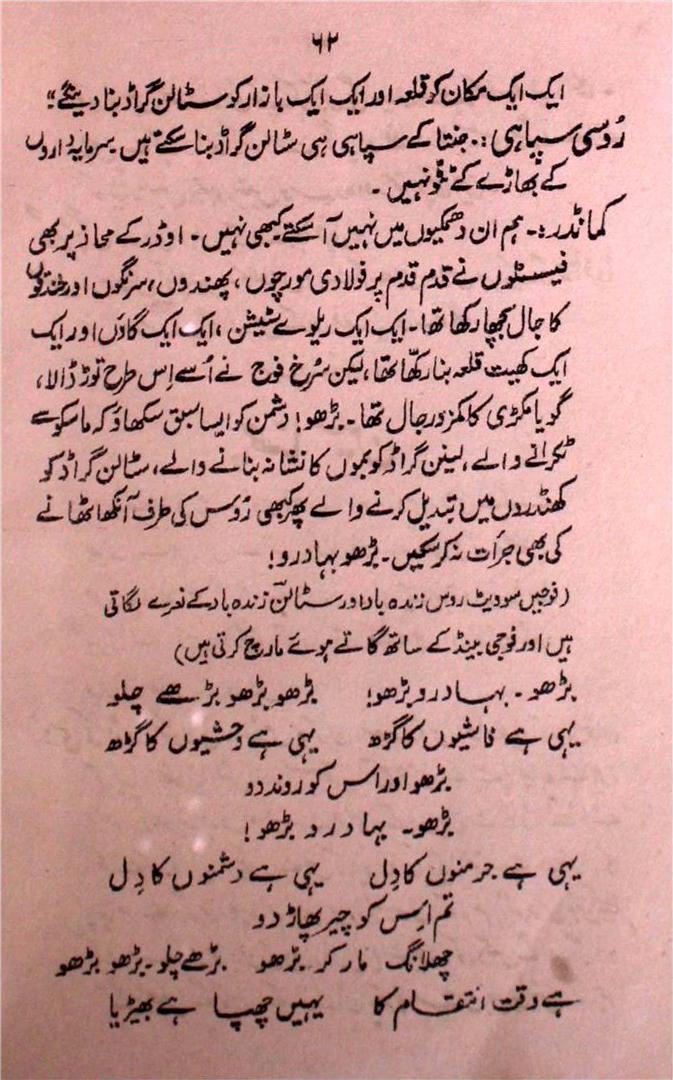 ۶۲
ایک ایک مکان کو قلعہ اور ایک ایک بازار کو سٹالن گراڈ بنا دینگے"
رُوسی سپاہی :۔ جنتا کے سپاہی ہی سٹالن گراڈ بنا سکتے ہیں سرمایہ داروں
کے بھاڑے کے ٹٹو نہیں ۔
کمانڈر :۔ ہم ان دھمکیوں میں نہیں آ سکتے کبھی نہیں۔ اوڈر کے محاذ پر بھی
فیسسٹوں نے قدم قدم پر فولادی مورچوں ، پھندوں، سرنگوں اور خندقوں
کا جال بچھا رکھا تھا۔ ایک ایک ریلوے سٹیشن ، ایک ایک گاؤں اور ایک
ایک کھیت قلعہ بنا رکھّا تھا ، لیکن سُرخ فوج نے اُسے اِس طرح توڑ ڈالا،
گویا مکڑی کا کمزور جال تھا ۔ بڑھو! دشمن کو ایسا سبق سکھاؤ کہ ماسکو سے
ٹکرانے والے ، لینن گراڈ کو بموں کا نشانہ بنانے والے، سٹالن گراڈ کو
کھنڈروں میں تبدیل کرنے والے پھر کبھی رُوس کی طرف آنکھ اٹھانے
کی بھی جرأت نہ کر سکیں۔ بڑھو بہادرو!
(فوجیں سوویٹ روس زندہ باد اور سٹالن زندہ باد کے نعرے لگاتی
ہیں اور فوجی بینڈ کے ساتھ گاتے ہوئے مارچ کرتی ہیں)
بڑھو ۔ بہادرو بڑھو! بڑھو بڑھو بڑھے چلو
یہی ہے فاشیوں کا گڑھ یہی ہے وحشیوں کا گڑھ
بڑھو اور اس کو روند دو
بڑھو۔ بہادرو بڑھو!
یہی ہے جرمنوں کا دِل یہی ہے دشمنوں کا دِل
تم اِس کو چیر پھاڑ دو
چھلانگ مار کر بڑھو بڑھے چلو۔ بڑھو بڑھو
ہے وقت انتقام کا یہیں چھپا ہے بھیڑیا